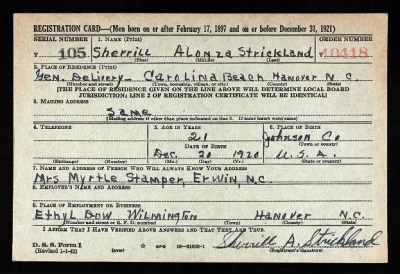 REGISTRATION CARD—(Men born on or after February 17, 1897 and on or before December 31, 1921)
SERIAL NUMBER 1. NAME (Print) ORDER NUMBER
T 105 Sherrill Alonza Strickland T 10418
(First) (Middle) (Last)
2. PLACE OF RESIDENCE (Print)
Gen. Delivery Carolina Beach Hanover N.C.
(Number and street) (Town, township, village, or city) (County) (State)
[THE PLACE OF RESIDENCE GIVEN ON THE LINE ABOVE WILL DETERMINE LOCAL BOARD
JURISDICTION; LINE 2 OF REGISTRATION CERTIFICATE WILL BE IDENTICAL]
3. MAILING ADDRESS
Same
[Mailing address if other than place indicated on line 2. If same insert word same]
4. TELEPHONE 5. AGE IN YEARS 6. PLACE OF BIRTH
21 Johnson Co
DATE OF BIRTH (Town or county)
Dec. 20 1920 U.S.A.
(Exchange) (Number) (Mo.) (Day) (Yr.) (State or country)
7. NAME AND ADDRESS OF PERSON WHO WILL ALWAYS KNOW YOUR ADDRESS
Mrs Myrtle Stamper, Erwin, N.C.
8. EMPLOYER'S NAME AND ADDRESS
9. PLACE OF EMPLOYMENT OR BUSINESS
Ethyl Dow Wilmington Hanover N.C.
(Number and street or R. F. D. number) (Town) (County) (State)
I AFFIRM THAT I HAVE VERIFIED ABOVE ANSWERS AND THAT THEY ARE TRUE.
D. S. S. Form 1
(Revised 1-1-42) (over) Sherrill A. Strickland
(Registrant's signature)